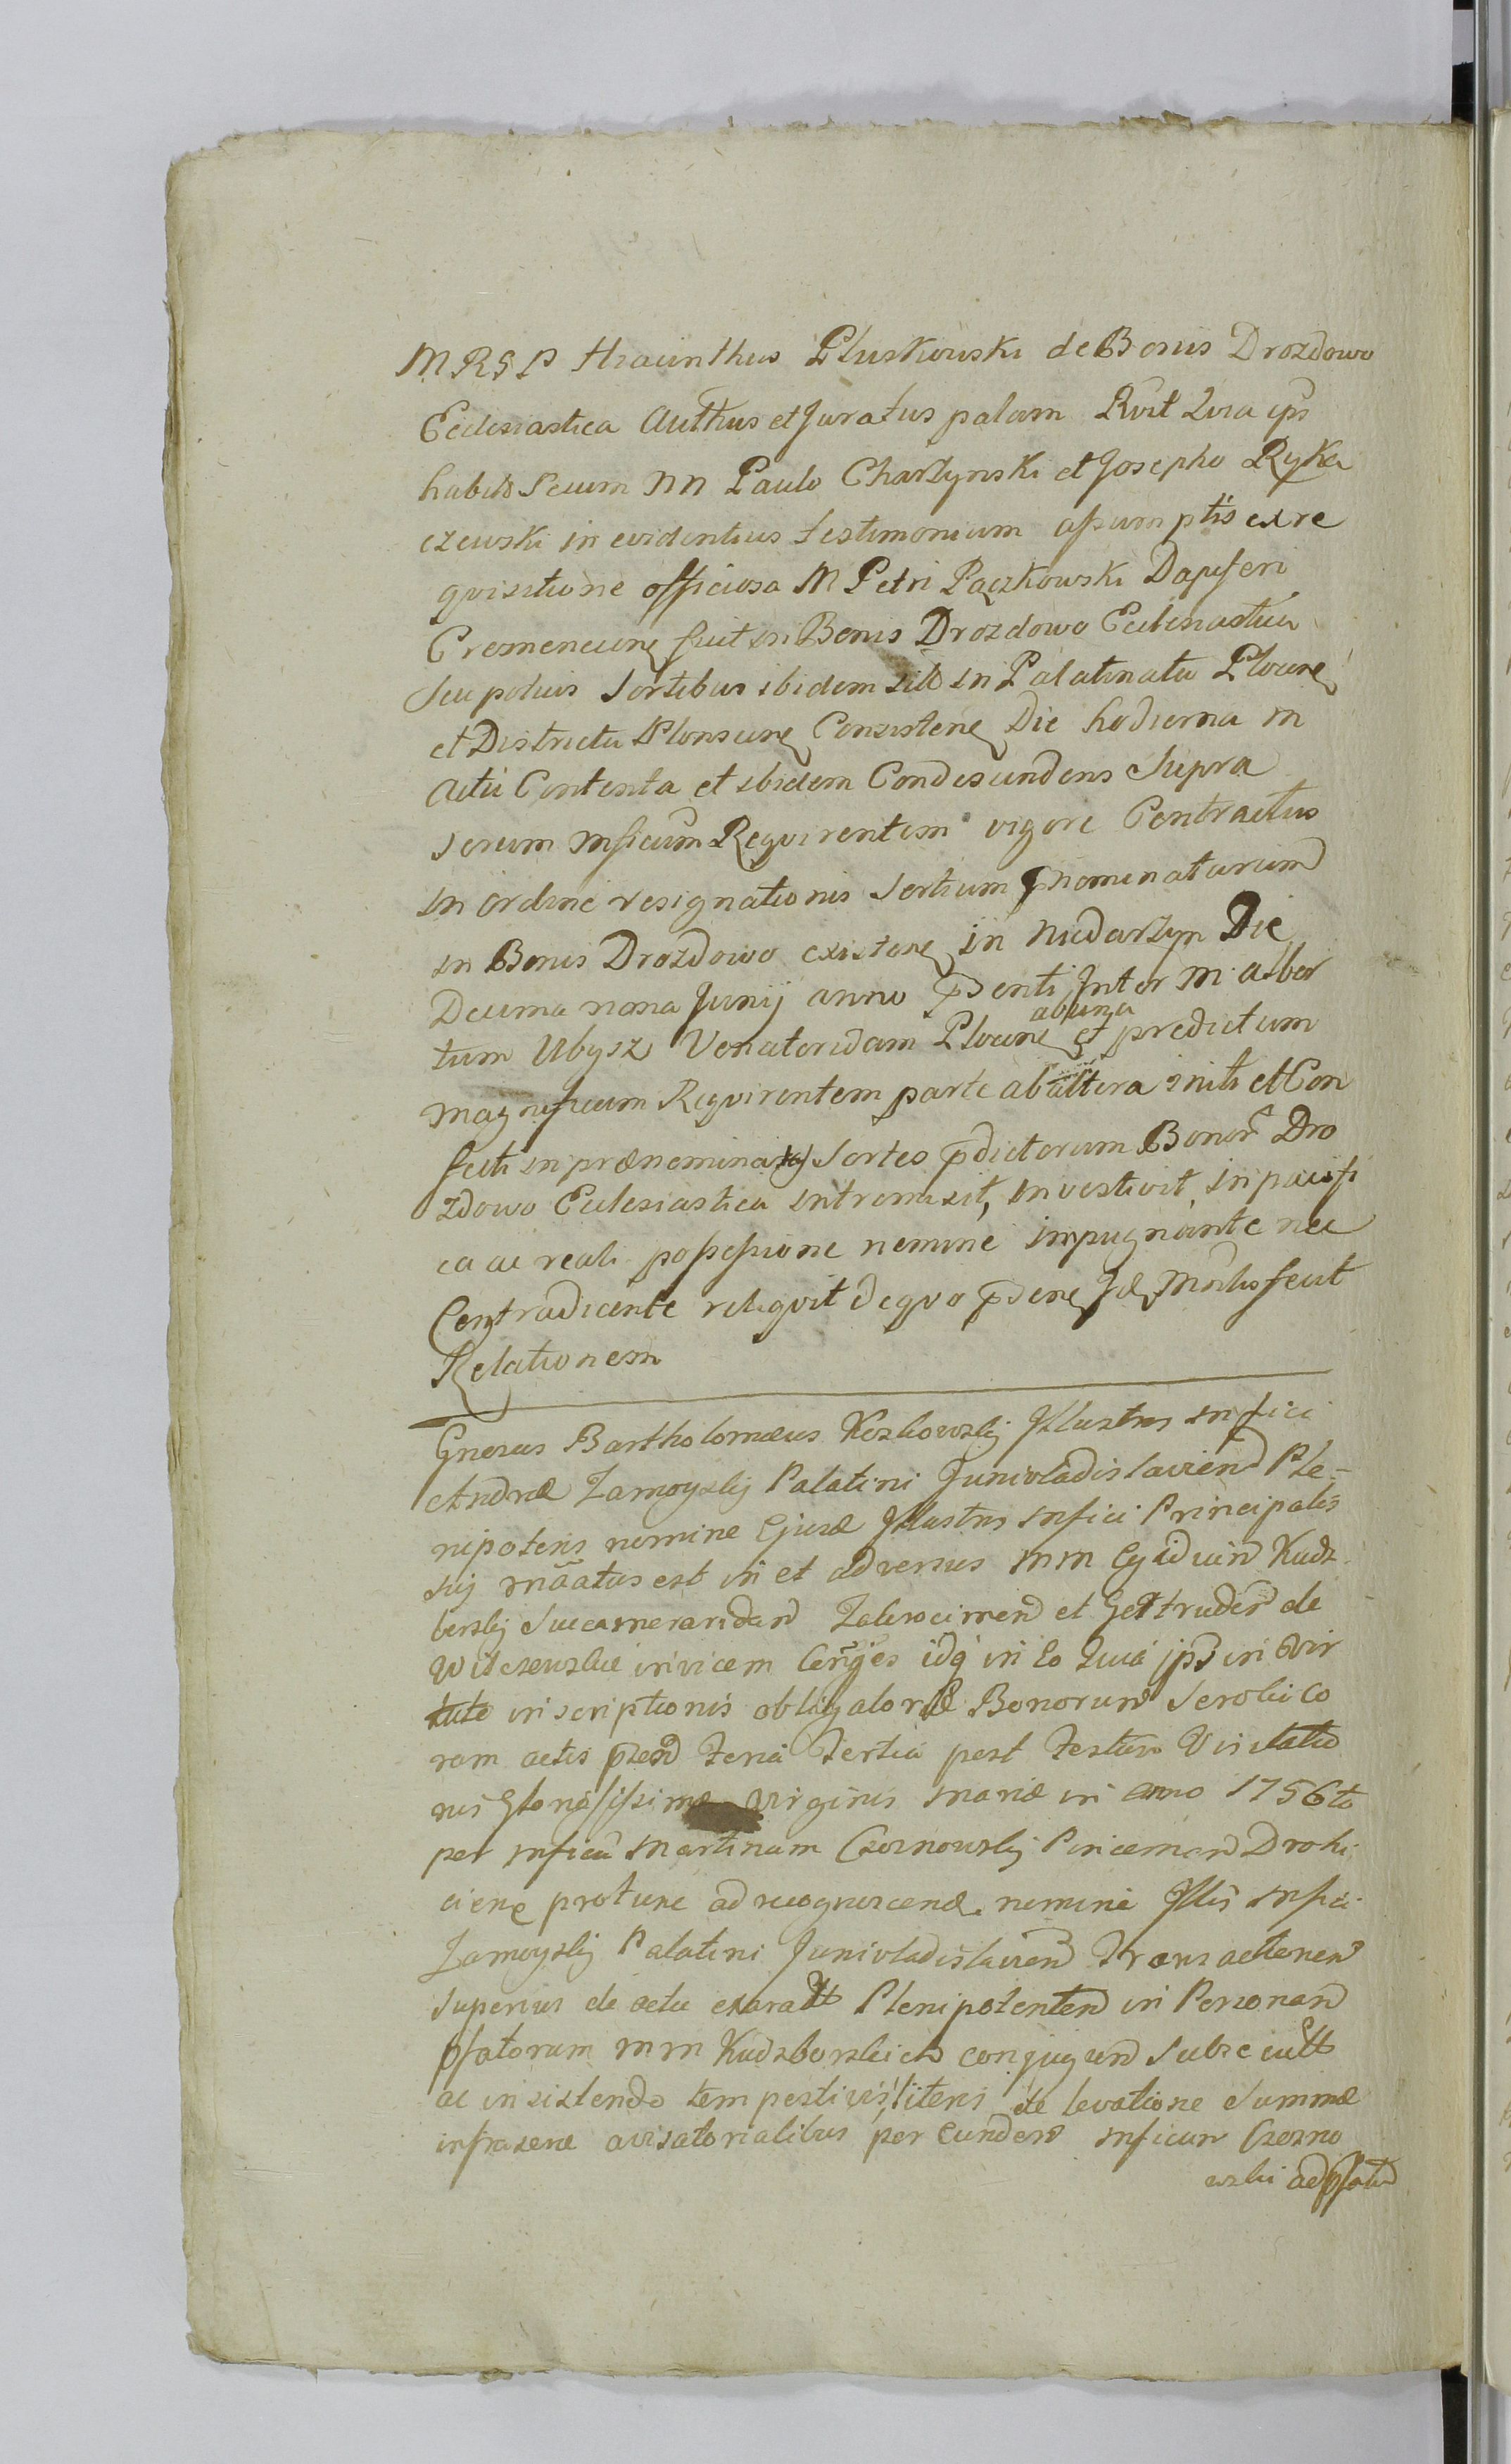 MRSP Hiacinthus Pluskowski de Bonis Drozdowo
Ecclesiastica Authus et Juratus palam Rvit Quia ips
habito secum NN Paulo Charlynski et Josepho Ryka
czewski in evidentius testimonium assumptis ex re
qvisitione officiosa M Petri Pączkowski Dapiferi
Cremenecine fuit in Bonis Drozdowo Ecclesiastica
seu potius sortibus ibidem sito in Palatinatu Plocine
et Districtu Plonscine Consistene Die hodierna in
Actu Contenta et ibidem Condescendens Supra
serum Mficum Reqvirentem vigore Contractus
in ordine resignationis sortium pnominatarum
in Bonis Drozdowo existene in Niedarzyn Die
Decima nona Junij anno psenti Inter M Alber
tum Ubysz Venatoridam Plocine ab una et predictum
magnificum Reqvirentem parte ab altera initi et Con
fecti in prænominatas Sortes pdictorum Bonor Dro
zdowo Ecclesiastica intromisit, investivit, in pacifi
ca ac reali possessione nemine impugnante nec
Contradicente reliqvit de qvo psene Mrlis fecit
Relationem
Gnerus Bartholomæus Kozłowskij Illustris Mfici
Andreæ Zamoyskij Palatini Junivladislaviens Ple-
nipotens nomine Ejusd Illustris Mfici Principalis
sui mãatus est in et adversus MM Egidium Kudz
berskij Succameraridam Zakrocimens et Gertrudem de
Wilczewskie invicem Conjges idq in Eo Quia ips in vir
tute inscriptionis obligatoriæ Bonorum Serokico
ram actis psen feria tertia post festum Visitatio
nis Gloriosissimæ Virginis Mariæ in anno 1756to
per Mficu Martinum Czosnowskij Pincernam Drohi
ciene protunc ad recognoscend nomine Illis Mfici
Zamoyskij Palatini Junivladislaviens Transactionem
superius de actu exarat Plenipotentem in Personam
pfatorum MM Kudzborskich conjugum subsecutt
ac insistendo tempestivis literis de levatione Summæ
infrasene avisatorialibus per Eundem Mficum Czosno
wski ad pfatu